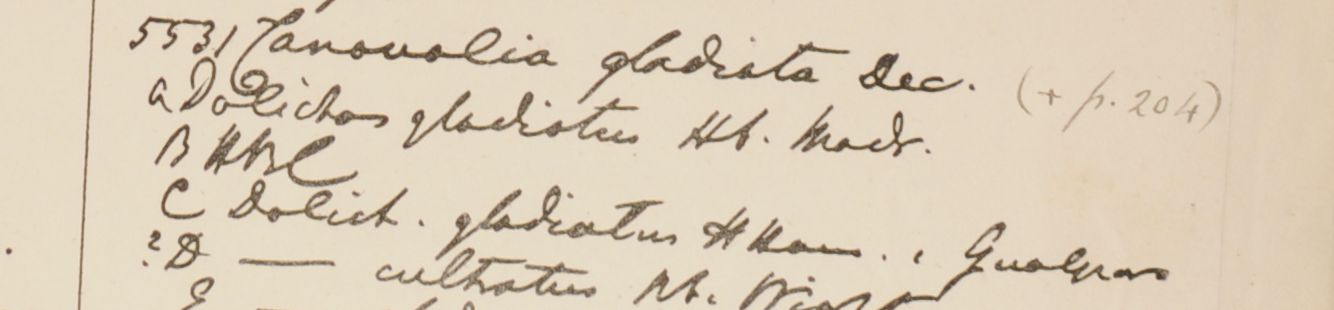 5531 Canavalia gladiata Dec. (+ p. 204)
a Dolichos gladiatus Hb. Madr.
B HBC
C Dolich. gladiatus HHam.
?D — cultratus Hb. Wight
E —